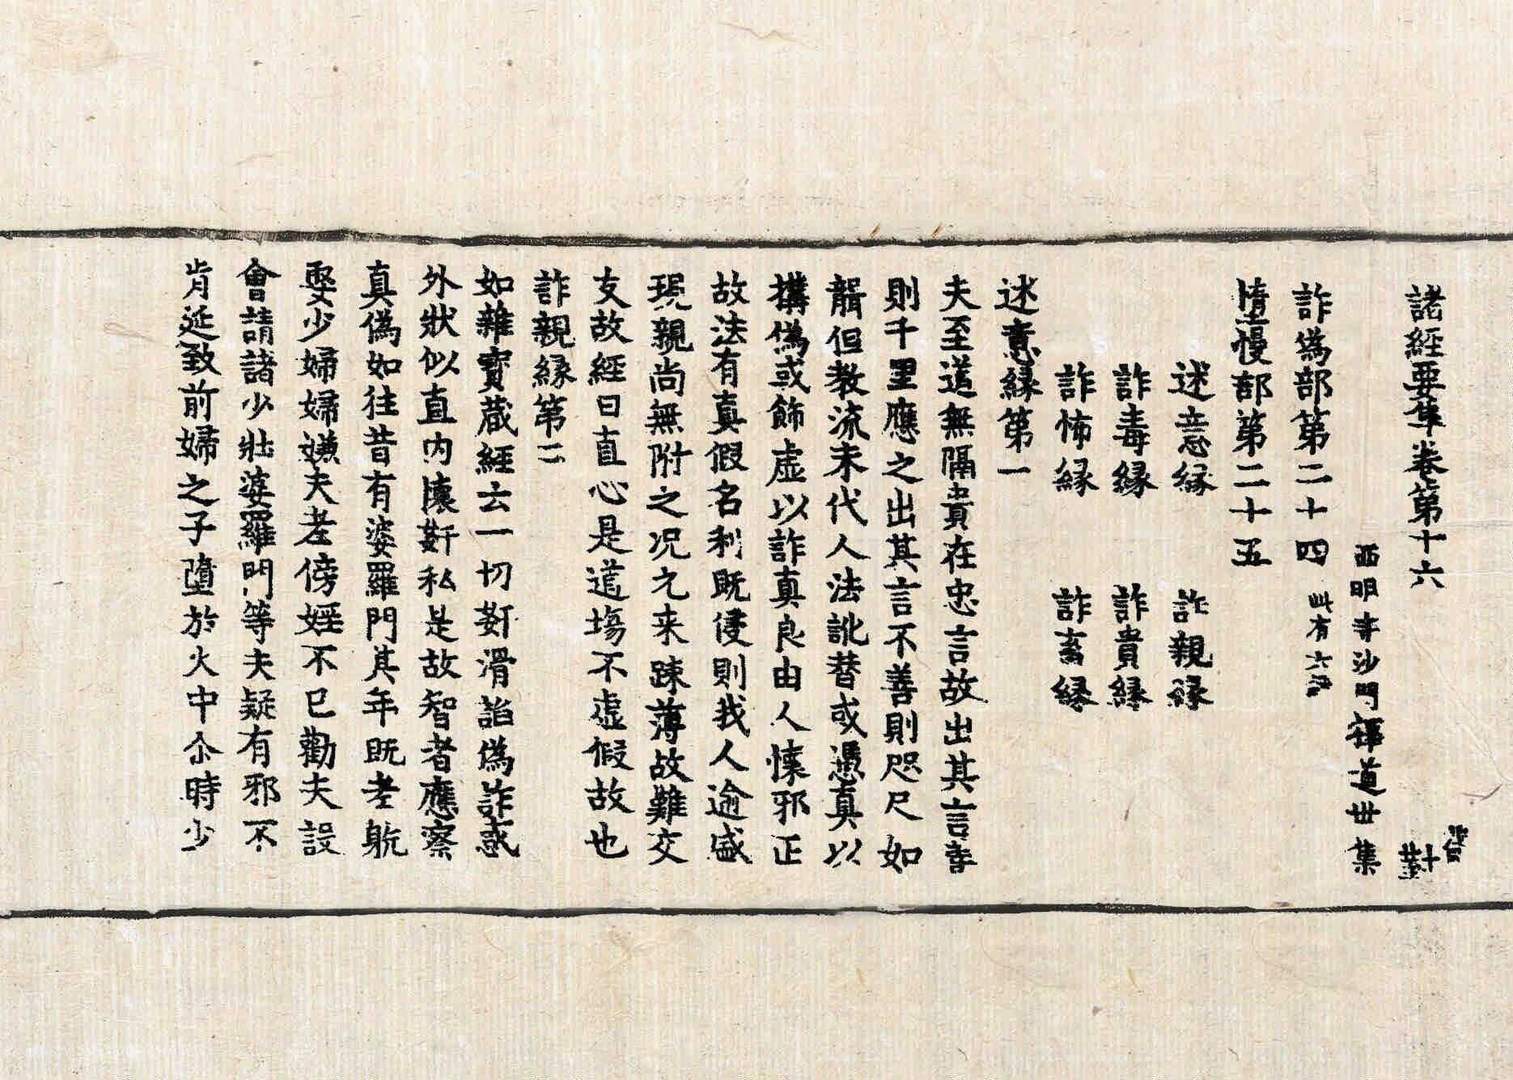 諸經要集卷第十六
西明寺沙門釋道世集
詐偽部第二十四 此有六緣
憍慢部第二十五
述意緣 詐親緣
詐毒緣 詐貴緣
詐怖緣 詐畜緣
述意緣第一
夫至道無隔貴在忠言故出其言善
則千里應之出其言不善則咫尺如
聾但教流末代人法訛替或憑真以
搆偽或飾虛以詐真良由人懷邪正
故法有真假名利既侵則我人逾盛
現親尚無附之況元来踈薄故難交
友故經曰直心是道場不虛假故也
詐親緣第二
如雜寶蔵經云一切姧滑諂偽詐惑
外狀似直内懷姧私是故智者應察
真偽如往昔有婆羅門其年既老躭
娶少婦婦嫌夫老傍婬不已勸夫設
會請諸少壯婆羅門等夫疑有邪不
肯延致前婦之子墮於火中尒時少